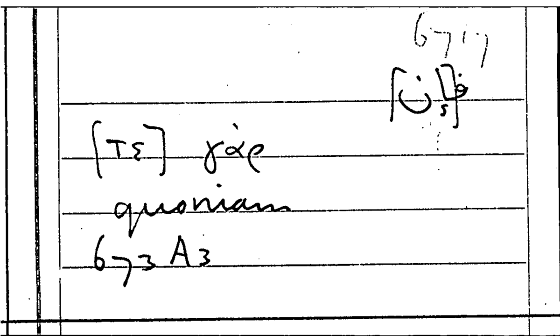 6717
[τε] γάρ
quoniam
673 A3